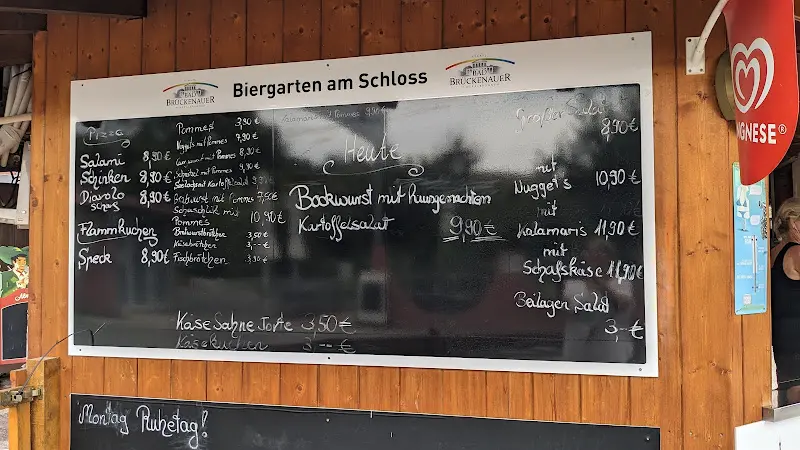 BAD BRÜCKENAUER
Biergarten am Schloss
BAD BRÜCKENAUER
Pizza
Salami 8,90€
Schinken 8,90€
Diavolo 8,90€
scharf
Flammkuchen
Speck 8,90€
Pommes 3,90€
Nuggets mit Pommes 7,90€
mit Pommes 8,90€
Schnitzel mit Pommes 9,90€
mit Kartoffelsalat
Bratwurst mit Pommes 7,50€
Schaschlik mit
Pommes 10,90€
Bratwurstbrötchen 3,50€
Käsebrötchen 3,--€
Fischbrötchen 3,90€
Kalamaris mit Pommes 9,90€
Heute
Bockwurst mit Hausgemachtem
Kartoffelsalat 9,90€
Käse Sahne Torte 3,50€
Käsekuchen 3,--€
Großer Salat
8,90€
mit
Nuggets 10,90€
mit
Kalamaris 11,90€
mit
Schafskäse 11,90€
Beilagen Salat
3,-€
Montag Ruhetag!
LANGNESE®